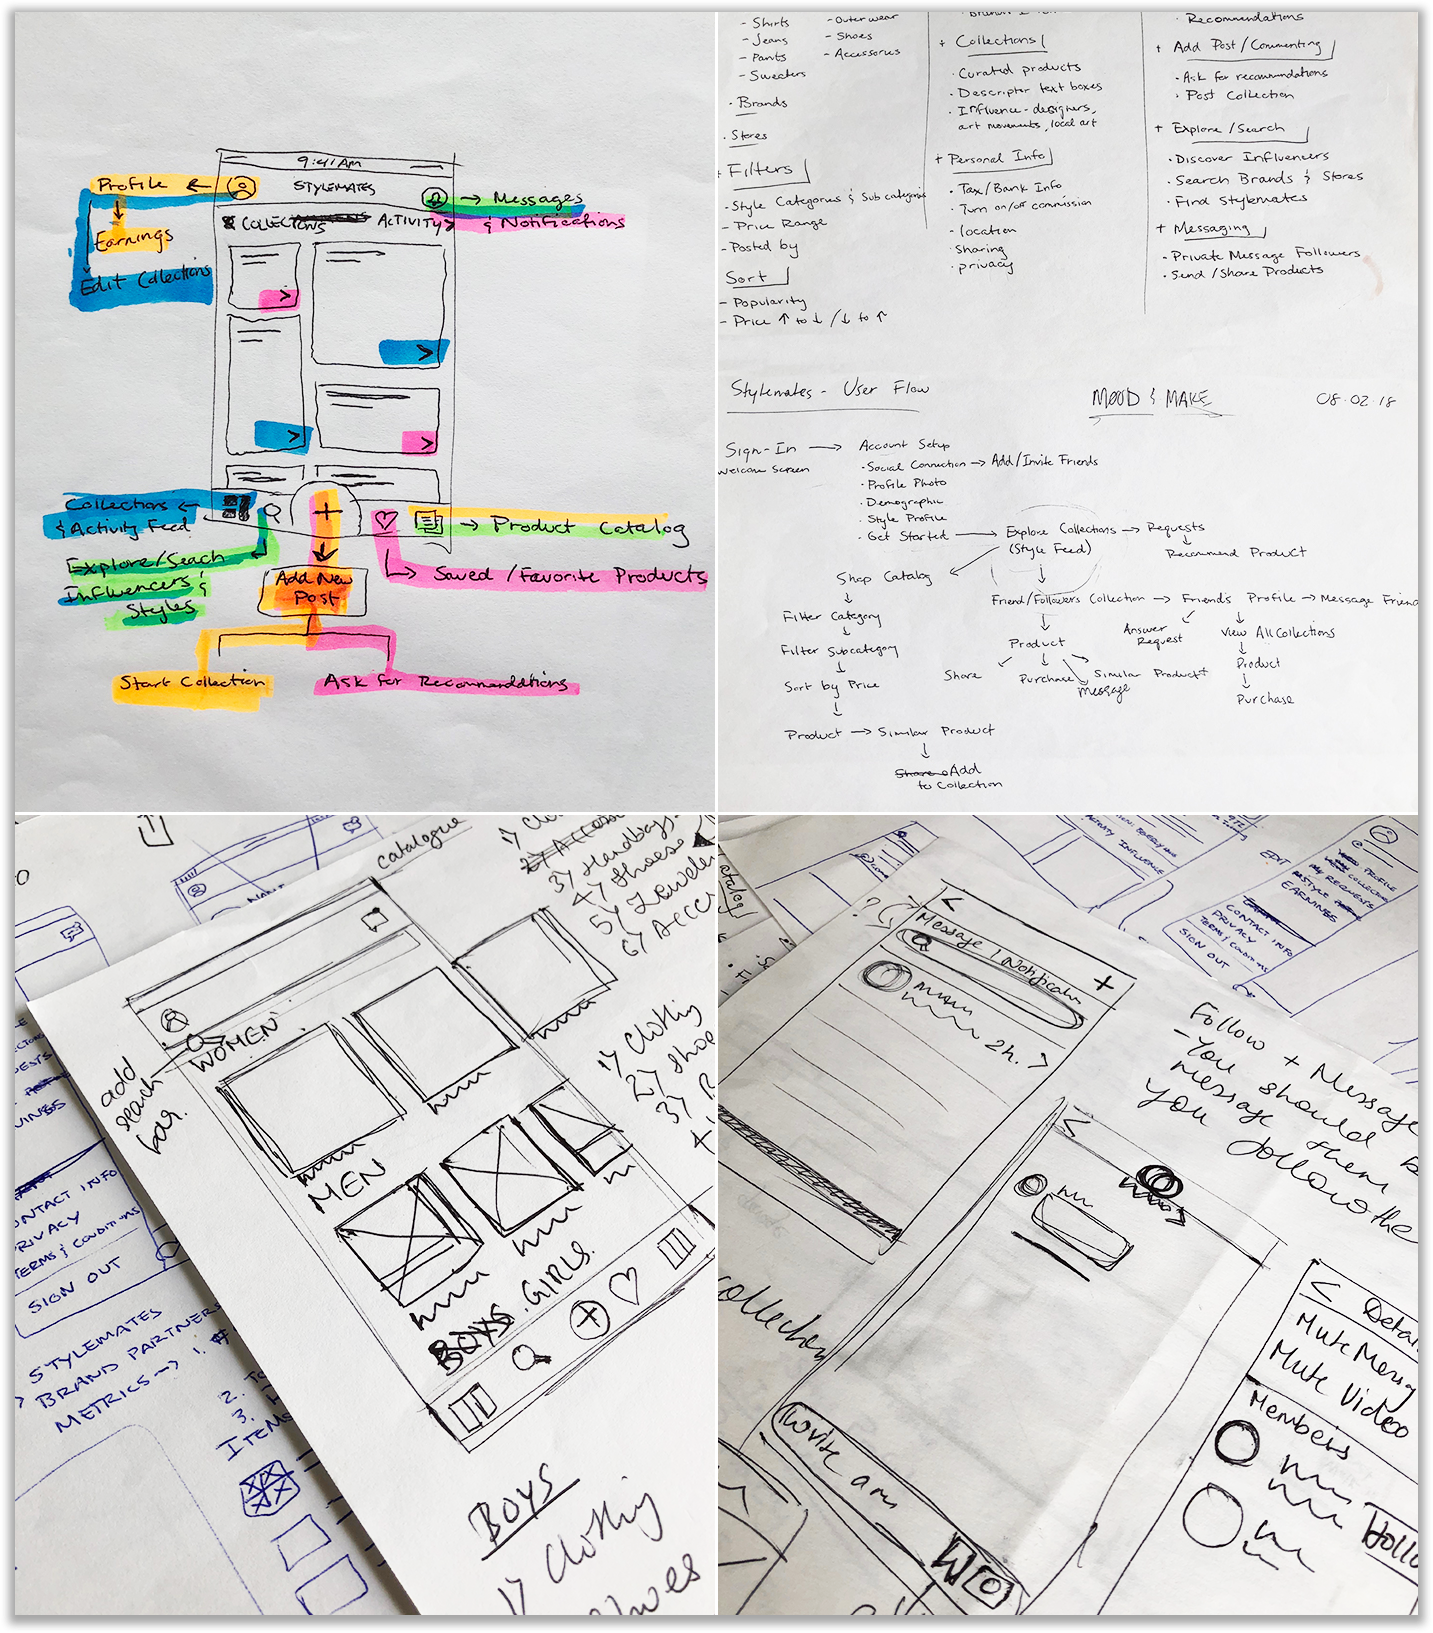 9:41 AM
Profile
STYLEMATES
Messages
& Notifications
COLLECTIONS
ACTIVITY
Earnings
Edit Collections
Collections
& Activity Feed
Explore/Seach
Influencers &
Styles
Product Catalog
Saved / Favorite Products
Add New
Post
Start Collection
Ask for Recommendations
- Shirts
- Jeans
- Pants
- Sweaters
- Outerwear
- Shoes
- Accessories
· Brands
· Stores
+ Filters
- Style Categories & Sub categories
- Price Range
- Posted by
Sort
- Popularity
- Price ↑ to ↓ / ↓ to ↑
+ Collections
· Curated products
· Descriptor text boxes
· Influence - designers,
art movements, local art
+ Personal Info
· Tax/Bank Info
· Turn on/off commission
- location
· Sharing
· privacy
Recommendations
+ Add Post / Commenting
· Ask for recommendations
· Post Collection
+ Explore / Search
· Discover Influencers
· Search Brands & Stores
· Find Stylemates
+ Messaging
- Private Message Followers
· Send / Share Products
Stylemates - User Flow
MOOD & MAKE
08.02.18
Sign-In → Account Setup
Welcome Screen
· Social Connection → Add/Invite Friends
· Profile Photo
· Demographic
· Style Profile
· Get Started → Explore Collections → Requests
(Style Feed)
Recommend Product
Shop Catalog
Filter Category
Friend/Followers Collection → Friends Profile → Message Friend
Filter Subcategory
Product
Answer
Request
View All Collections
Sort by Price
Share
Purchase
Similar Product
Message
Product
Purchase
Product → Similar Product
Add
to Collection
catalogue
3) Handbags
4) Shoes
5) Jewelery
6) ACCE
WOMEN
add
search
bar.
1) Clothing
2) Shoe
3)
4)
MEN
BOYS. GIRLS.
CONTACT INFO
PRIVACY
TERMS & CONDITIONS
SIGN OUT
STYLEMATES
BRAND PARTNERS
METRICS → 1.
2.
3.
ITEMS
BOYS
1) Clothing
Catalog
INFLUENCE
EDIT
PROFILE
EARNINGS
CONTACT INFO
PRIVACY
TERMS & CONDITIONS
SIGN OUT
Message / Notification
2h.
Follow + Message
- You should b
message them
you follow the
collection
Invite
Detai
Mute Messg
Mute Video
Members
Follo